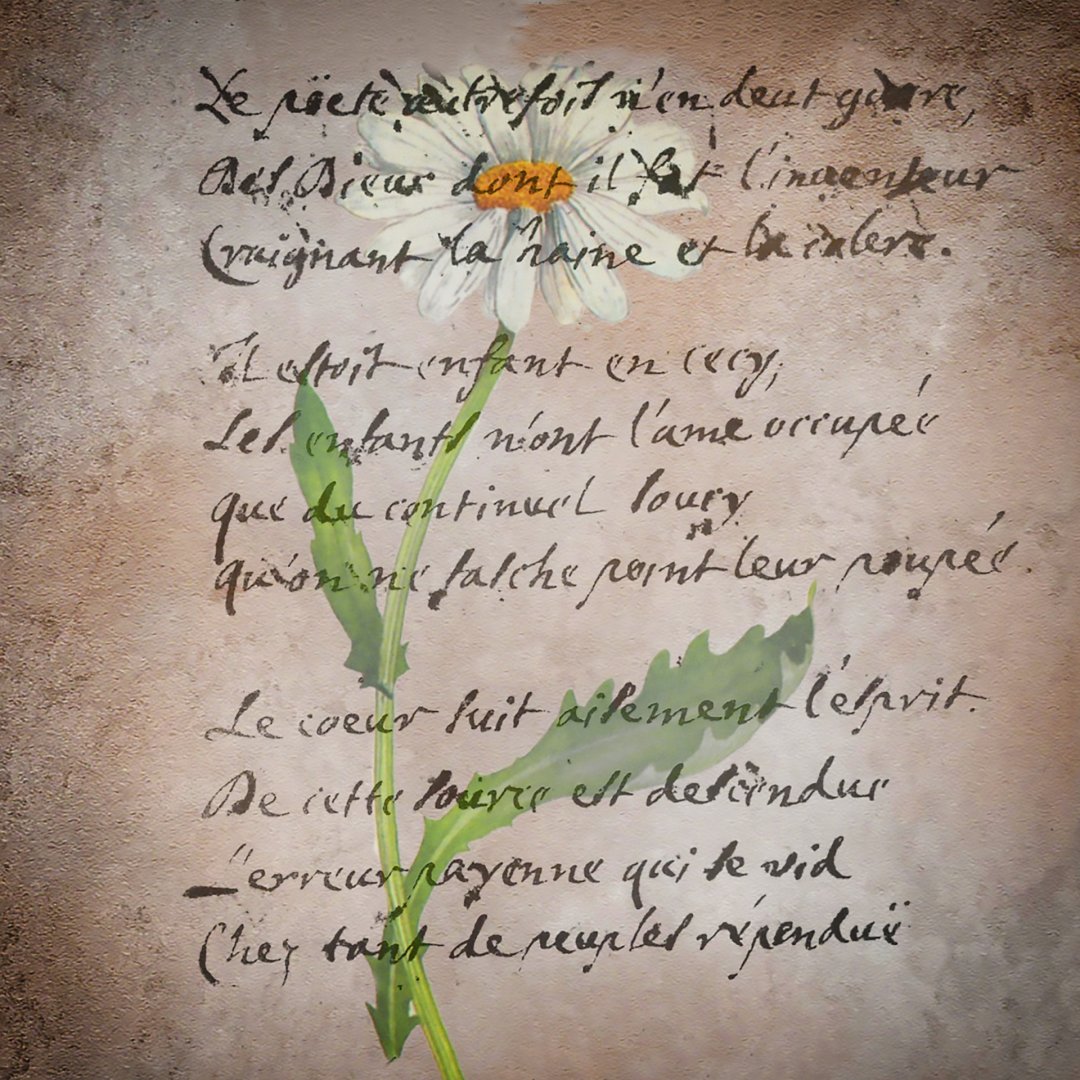 Le pöete autrefois n'en deut guere,
Des Dieux dont il fut l'inventeur
Craignant la haine et la colere.
Il estoit enfant en cecy;
Les enfants n'ont l'ame occupée
que du continuel soucy
qu'on ne fasche point leur poupée.
Le coeur suit aisement l'esprit.
De cette source est descendue
L'erreur payenne qui se vid
Chez tant de peuples répenduë